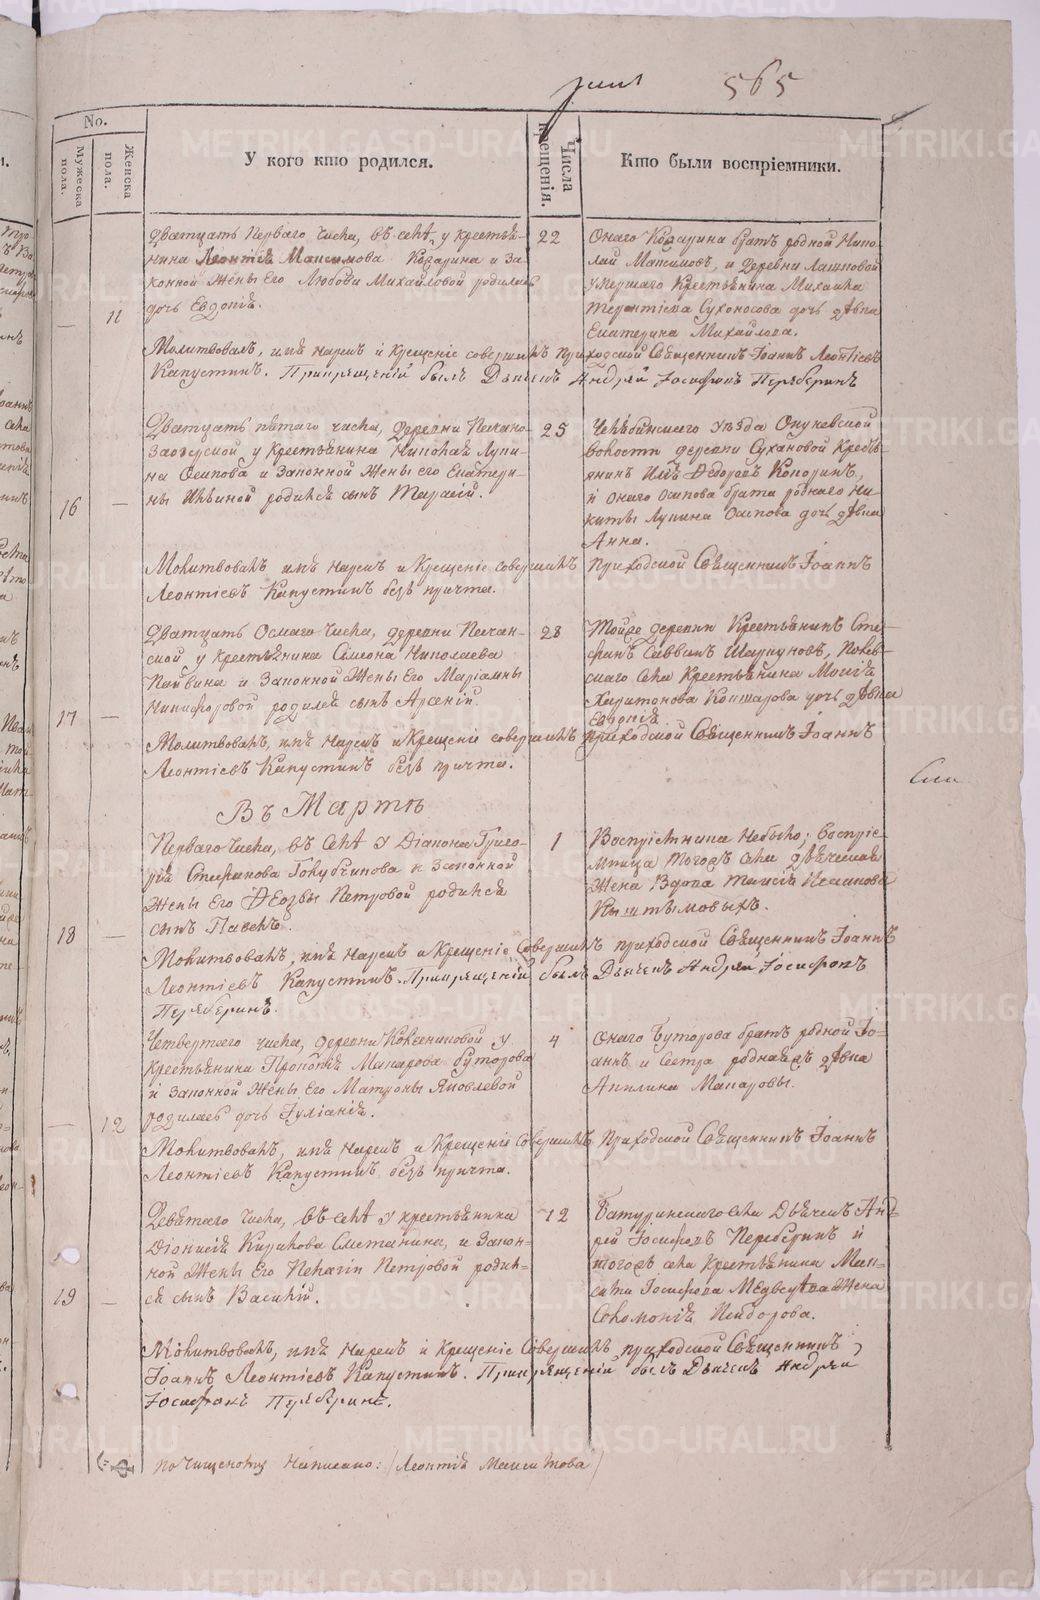 565
No.
Мужеска пола.
Женска пола.
У кого кто родился.
Числа крещенія.
Кто были воспріемники.
11
Дватцать Перваго числа, въ селѣ у крестья-
нина Леонтія Максимова Козарина и за-
конной Жены Его Любови Михайловой родилась
дочь Евдокія.
22
Онаго Козарина братъ родной Нико-
лай Максимовъ, и деревни
умершаго Крестьянина Михаила
Терентіева Сухоносова дочь дѣвка
Екатерина Михайлова.
Молитвовалъ, имя нарекъ и Крещеніе совершилъ приходской Священникъ Іоаннъ Леонтіевъ
Капустинъ. При крещеніи былъ Дьячекъ Андрей Іосифовъ Переберинъ
16
Дватцать пятаго числа, деревни Песчано-
Заозерской у Крестьянина Николая Лупи-
на Осипова и Законной Жены его Екатери-
ны Ильиной родился сынъ Тарасій.
25
Челябинскаго уѣзда Окуневской
волости деревни Сухановой Кресть-
янинъ Илья Ѳедоровъ Копоринъ,
и онаго Осипова брата роднаго Ни-
киты Лупина Осипова дочь дѣвка
Анна.
Молитвовалъ имя нарекъ и Крещеніе совершилъ приходской Священникъ Іоаннъ
Леонтіевъ Капустинъ безъ причта.
17
Дватцать Осмаго числа, деревни Песчан-
ской у крестьянина Симеона Николаева
Пайвина и Законной Жены Его Маріамны
Никифоровой родился сынъ Арсеній.
28
Тойже деревни Крестьянинъ Сте-
фанъ Саввинъ Шаркуновъ,
села Крестьянина Моисія
Харитонова дочь дѣвка
Евдокія.
Молитвовалъ, имя нарекъ и Крещеніе совершилъ приходской Священникъ Іоаннъ
Леонтіевъ Капустинъ безъ причта.
Въ Мартѣ
18
Перваго числа, въ селѣ у Діакона Григо-
рія Стефанова Голубчикова и Законной
Жены Его Ѳеозвы Петровой родился
сынъ Павелъ.
1
Воспріемника небыло; воспріе-
мница тогожъ села дьячецкая
Жена Вдова Таисія
Кыштымовыхъ.
Молитвовалъ, имя нарекъ и Крещеніе Совершилъ приходской Священникъ Іоаннъ
Леонтіевъ Капустинъ. При крещеніи былъ Дьячекъ Андрей Іосифовъ
Переберинъ.
12
Четвертаго числа, деревни Коклениковой у
Крестьянина Прокопія Макарова Буторова
и Законной Жены Его Матроны Яковлевой
родилась дочь Іуліанія.
4
Онаго Буторова братъ родной Іо-
аннъ и Сестра родная дѣвка
Акилина Макаровы.
Молитвовалъ, имя нарекъ и Крещеніе совершилъ приходской Священникъ Іоаннъ
Леонтіевъ Капустинъ безъ причта.
19
Девятаго числа, въ селѣ у крестьянина
Діонисія Кирилова Сметанина, и Закон-
ной Жены Его Пелагіи Петровой родил-
ся сынъ Василій.
12
Батуринскаго села Дьячекъ Анд-
рей Іосифовъ Переберинъ и
тогожъ села Крестьянина
Іосифова Медведева Жена
Соломонія
Молитвовалъ, имя нарекъ и Крещеніе Совершилъ приходской Священникъ
Іоаннъ Леонтіевъ Капустинъ. При крещеніи былъ Дьячекъ Андрей
Іосифовъ Переберинъ.
По чищенному Написано: (Леонтія Максимова)
METRIKI.GASO-URAL.RU